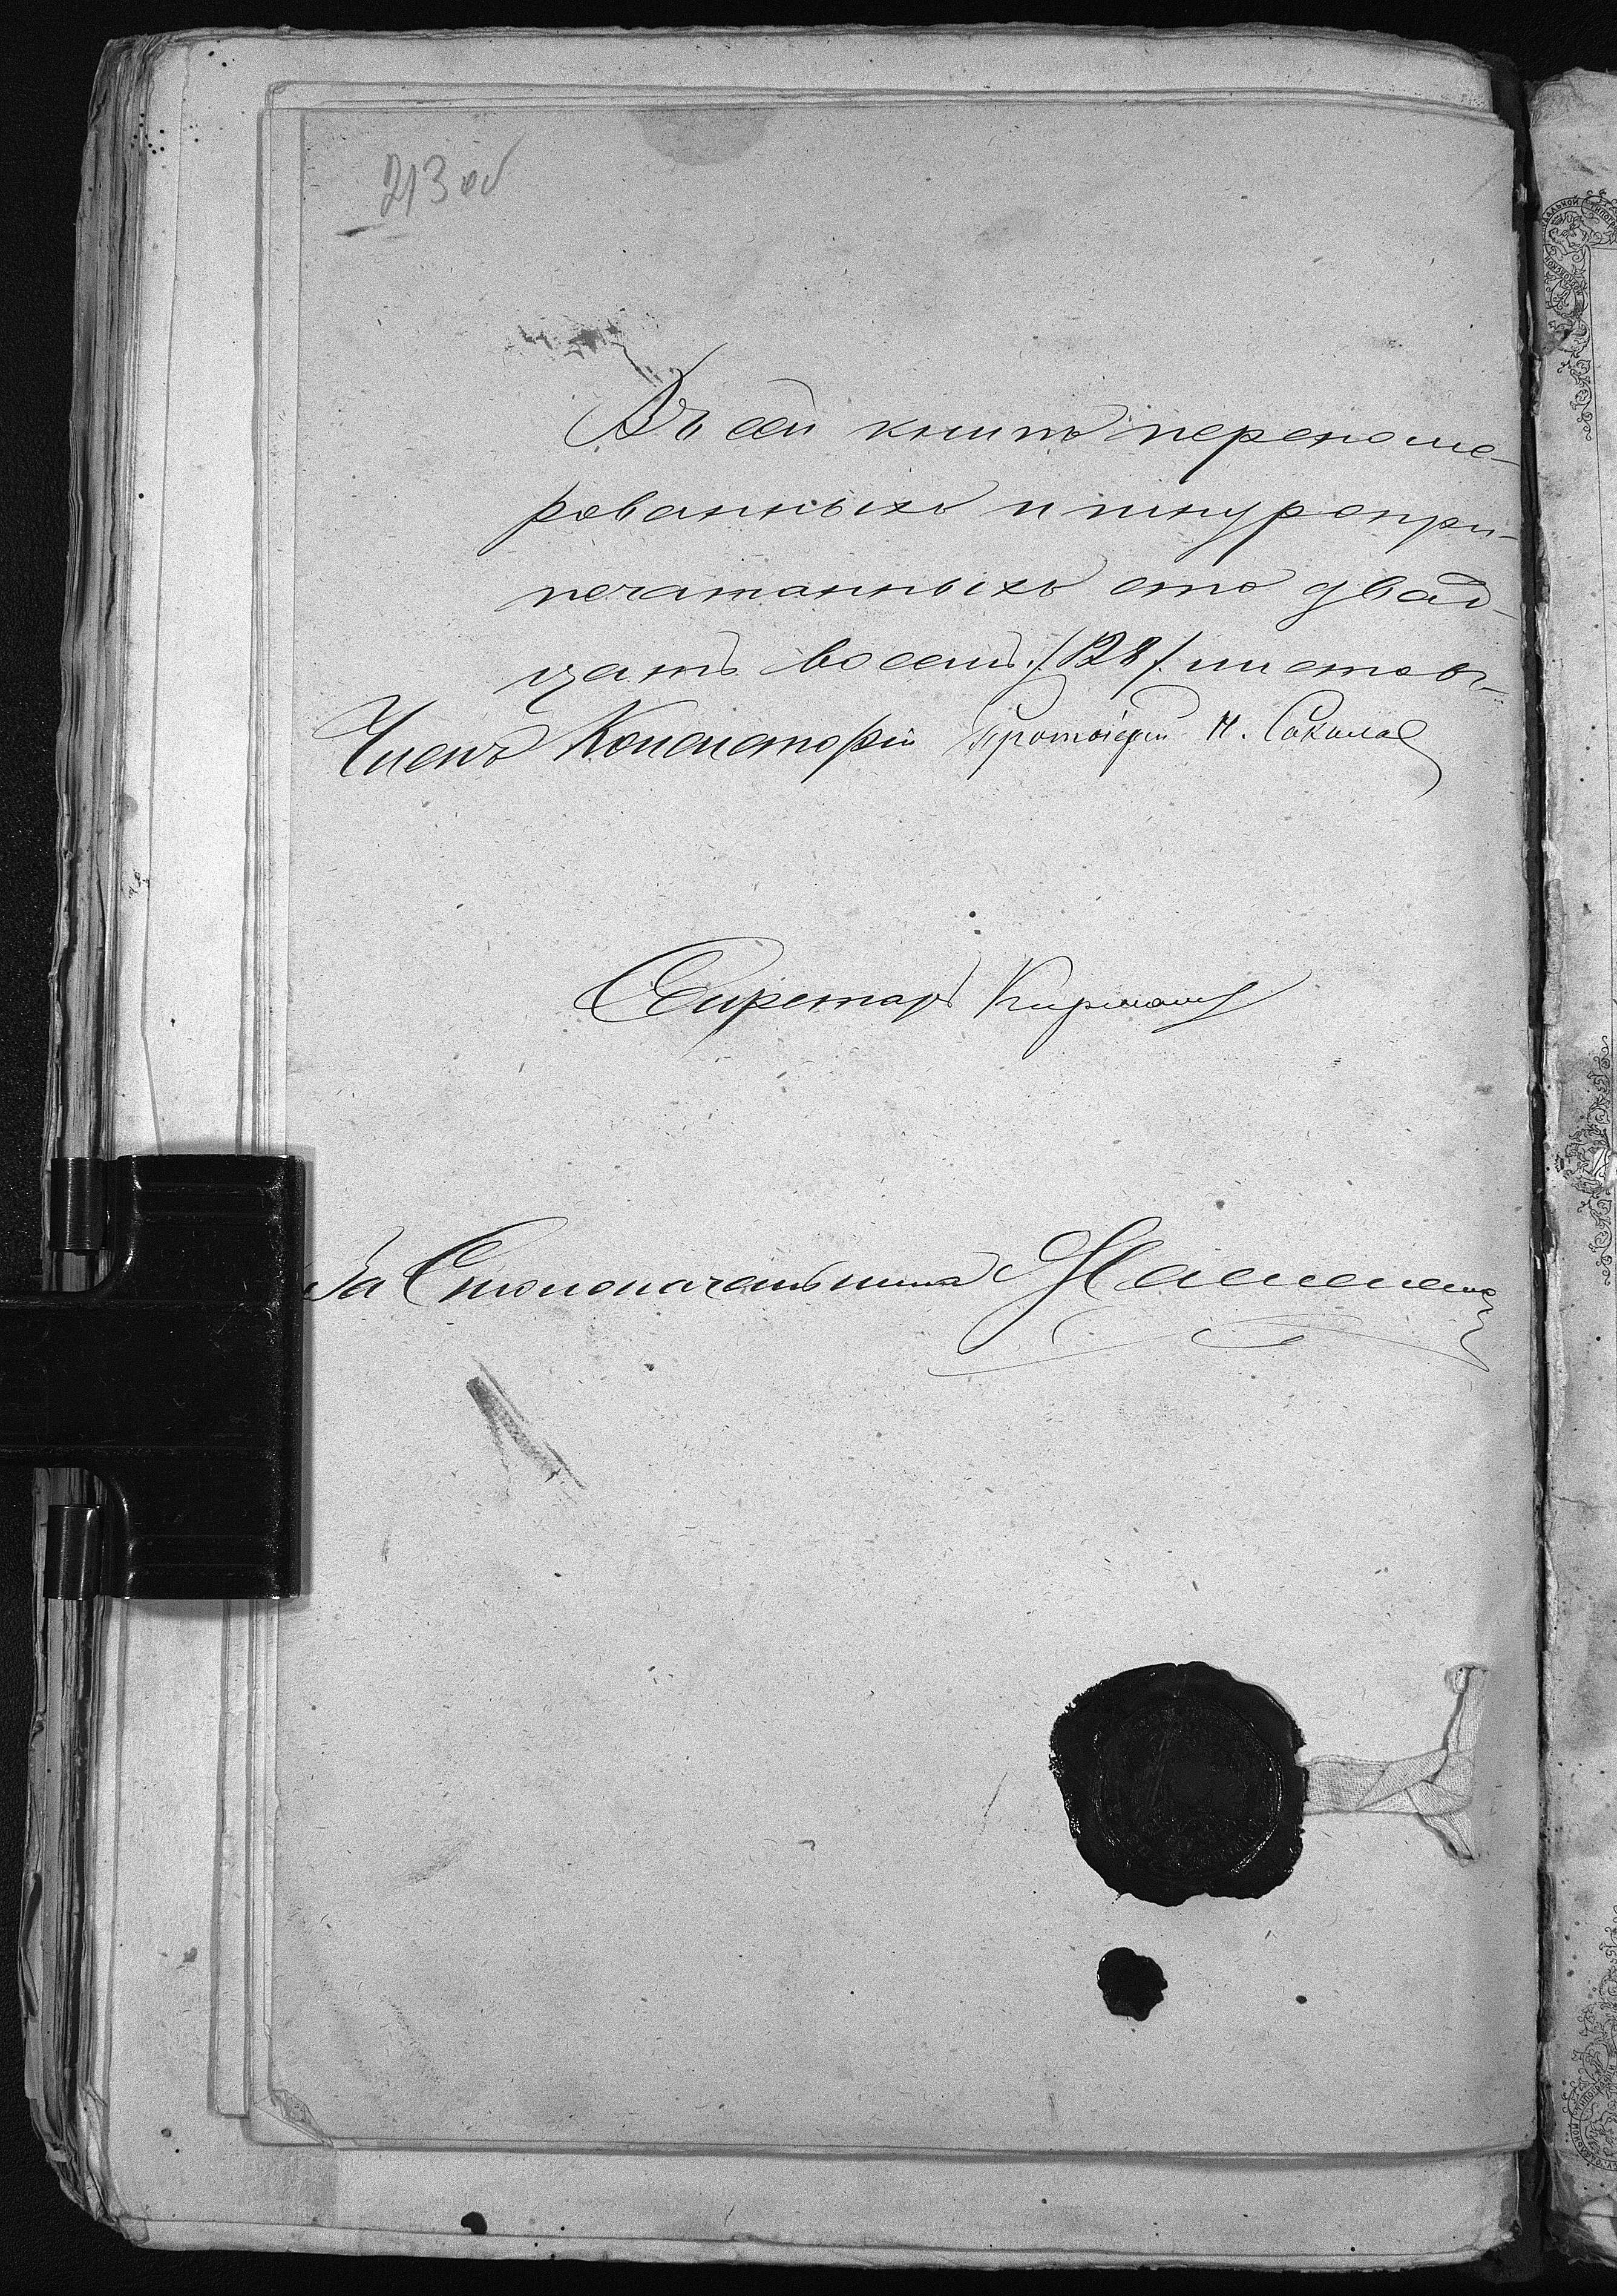 213 об
Въ сей книгѣ перенуме-
рованныхъ и шнуропри-
печатанныхъ сто двад-
цать восемь /128/ листовъ.
Членъ Консисторіи Протоіерей Н. Соколов
Секретарь
За Столоначальника